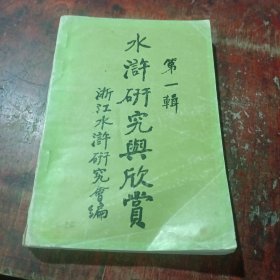 第一輯
水滸研究與欣賞
浙江水滸研究會編